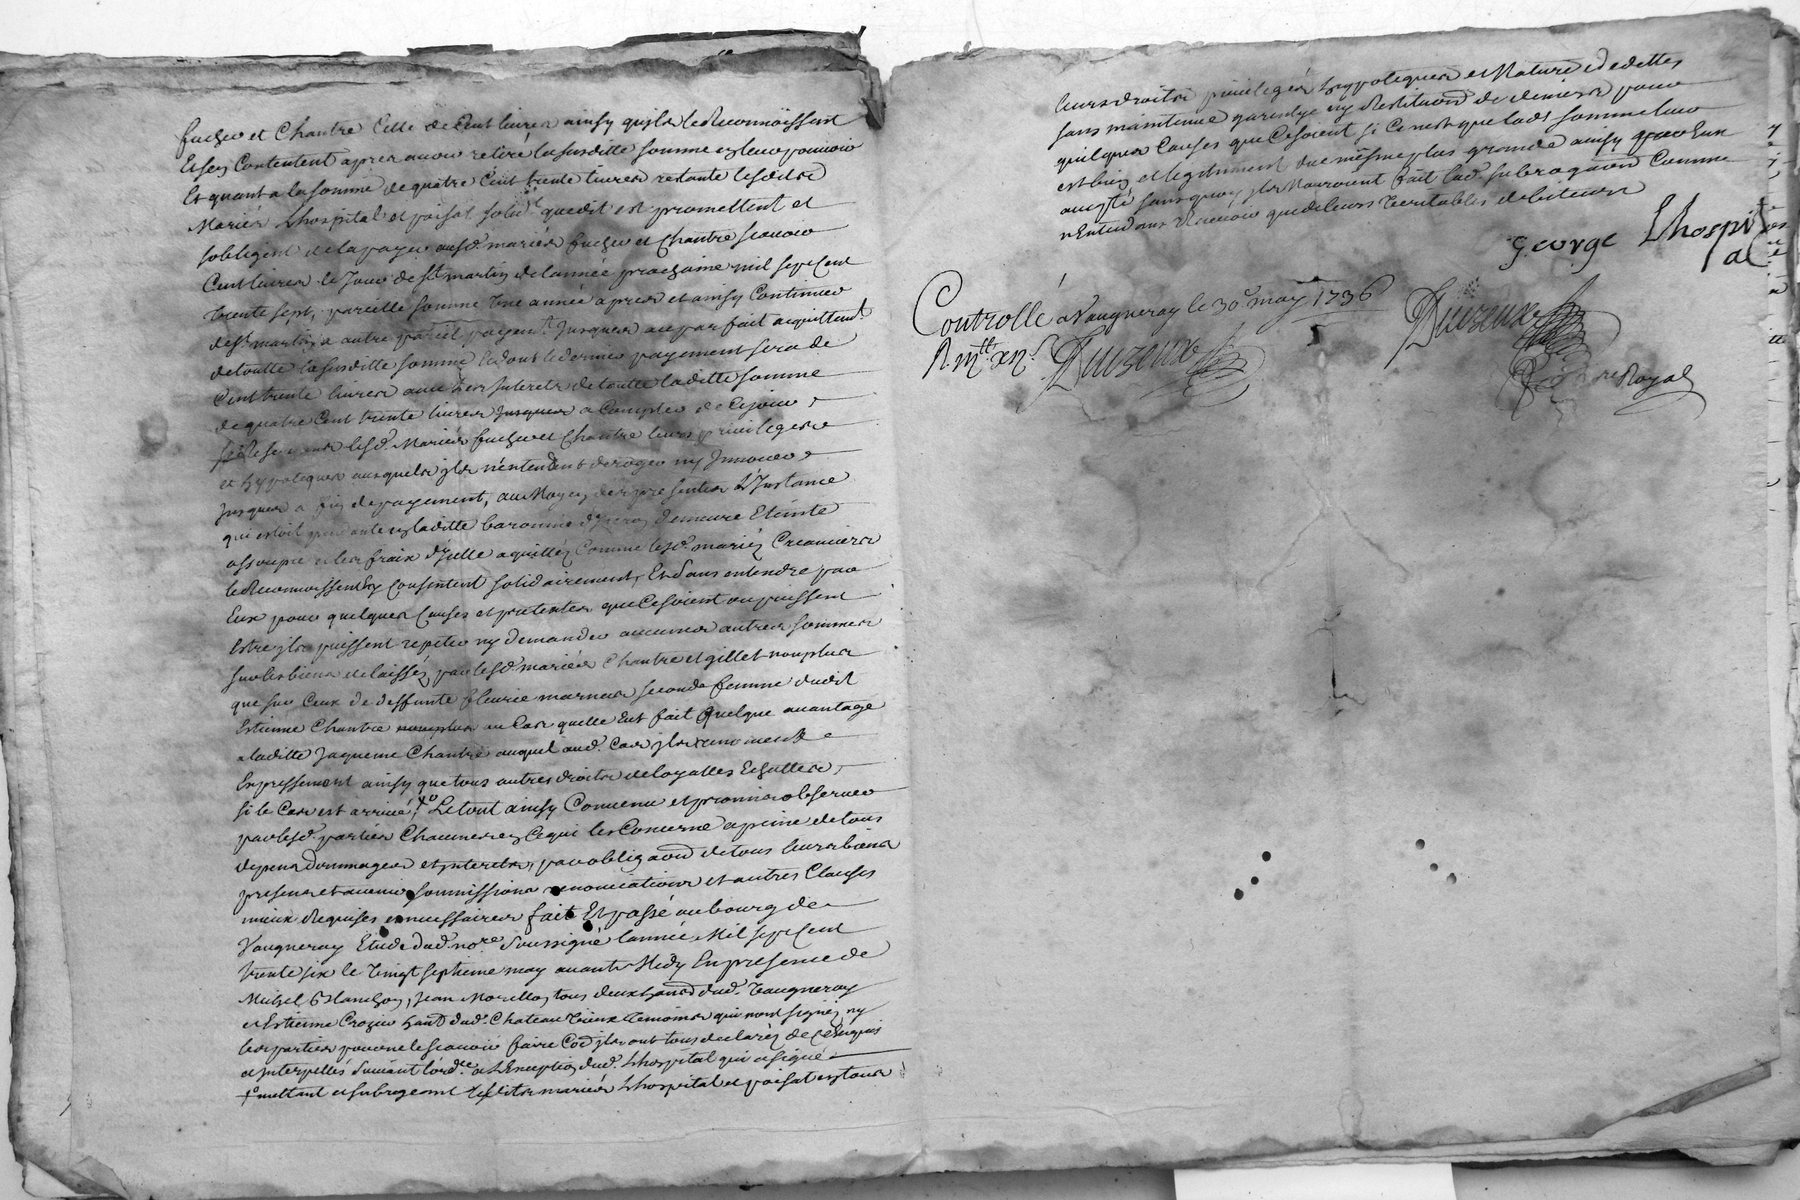 fucher et Chantre Celle de Cent livres ainsy qu'ils le Reconnoissent
Et sen Contentent apres avoir retiré la susditte somme en leur pouvoir
Et quant a la somme de quatre Cent trente livres restante lesdits
Mariés Lhospital et poisat solid.t que dit est promettent et
sobligent de la payer ausd. mariés fucher et Chantre scavoir
Cent livres le Jour de st martin de lannée prochaine mil sept Cent
trente sept, pareille somme une année apres et ainsy Continuer
de st martin a autre pareil payem.t Jusques au parfait acquittem.t
de toutte la susditte somme dont le dernier payement sera de
Cent trente livres avec les Interets de toutte laditte somme
de quatre Cent trente livres Jusques a Compter de Ce jour
se Reservans lesd. Mariés fucher et Chantre leurs privileges
et hypoteques ausquels ils n'entendent deroger ny Innover
Jusques a fin de payement, au Moyen des presentes L'Instance
qui estoit pendante en laditte baronnie d'yzeron demeure Eteinte
assoupie et les fraix d'Icelle aquittés Comme lesd. mariés Creanciers
le Reconnoissent Et Consentent solidairement, Et sans entendre par
Eux pour quelques Causes et pretextes que Ce soient ou puissent
Estre ils puissent repeter ny demander aucunes autres sommes
sur les biens delaissés par lesd. mariés Chantre et gillet non plus
que sur Ceux de deffunte fleurie marnas seconde femme dudit
Estienne Chantre au Cas quelle Eut fait quelque avantage
a laditte Jaqueme Chantre auquel aud. Cas ils renoncent
Expressement ainsy que tous autres droits de loyalles Echuttes,
si le Cas est arrivé, Le tout ainsy Convenu et promis observer
par lesd. parties Chacunes en Ce qui les Concerne a peine de tous
depens dommages et Interets, par obliga.on de tous leurs biens
presens et avenir soumissions renonciations et autres Clauses
mieux Requises et necessaires fait Et passé au bourg de
Vaugneray Etude dud. no.re soussigné lannée Mil sept Cent
trente six le vingt septieme may avant Midy En presence de
Michel Blanchon, Jean Morellon tous deux hants dud. Vaugneray
et Estienne Crozier hant dud. Chateau vieux temoins qui n'ont signé ny
les parties pour ne le scavoir faire Co.e ils ont tous declarés de Ce Enquis
et Interpellés suivant l'ord.ce a L'Exception dud. Lhospital qui a signé
mettant et subrogeant lesdits mariés Lhospital et poisat en tous
leurs droits privileges hypoteques et Nature de dettes
sans maintenue garentye ny Restitution de deniers pour
quelques Causes que Ce soient si Ce n'est que lad. somme leur
est bien et legitimement due même plus grande ainsy que Eux
ont sans quoy ils n'auroient fait lad. subroga.on Comme
n'Entendans Recevoir que de leurs veritables debiteurs
george Lhospital
Controllé a Vaugneray le 30e may 1736
Duizeux
Duizeux
no.re Royal